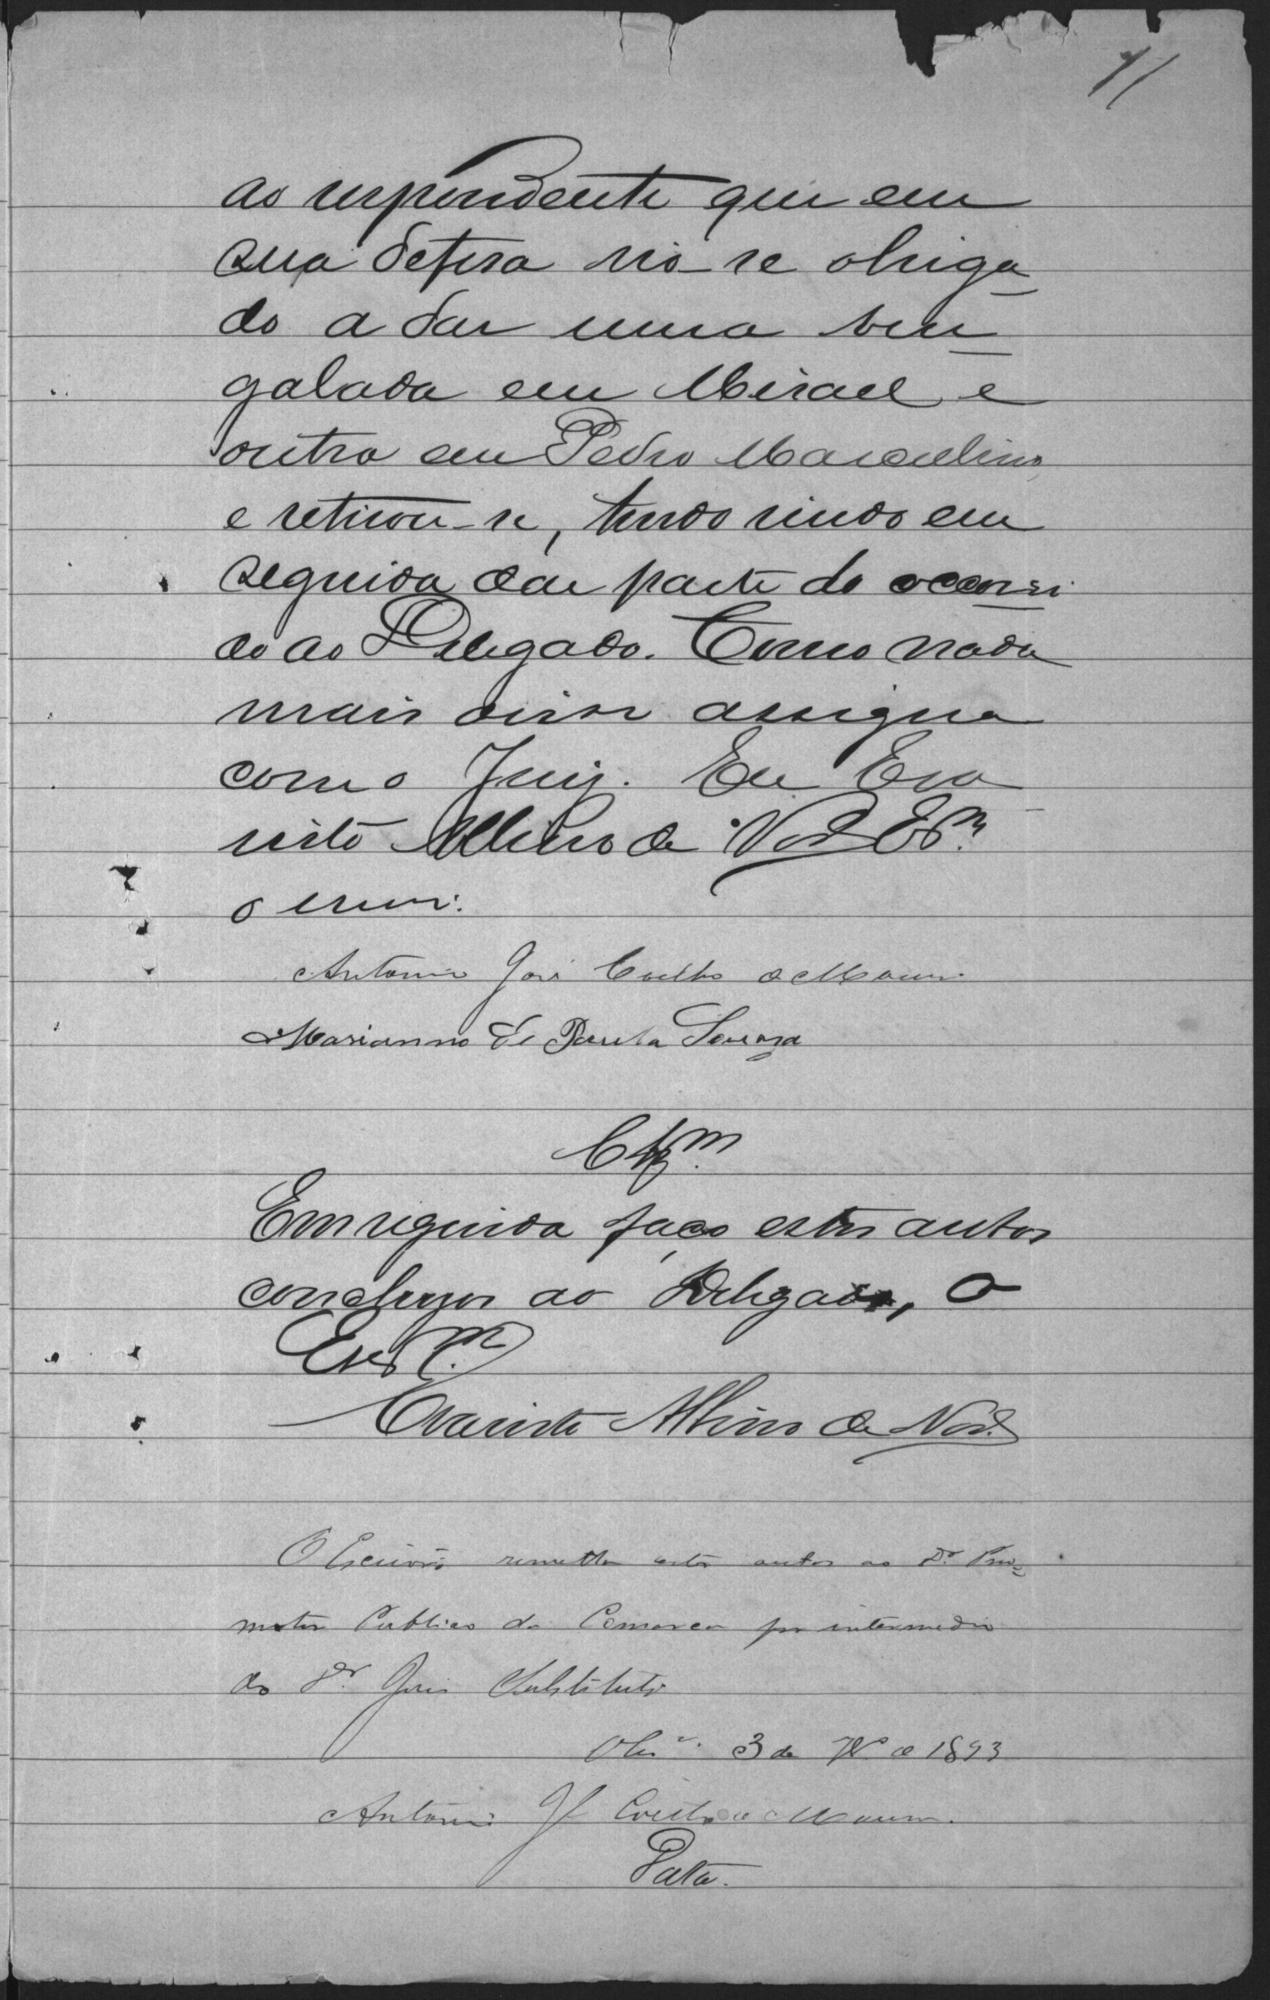 11
ao respondente que em
sua defesa vio-se obriga
do a dar uma ben
galada em Misael e
outra em Pedro Marcelino
e retirou-se, tendo vindo em
seguida dar parte do occorri
do ao Delegado. Como nada
mais disse assigna
com o Juiz. Eu Eva
risto Albino de Escm.
o escrevi.
Antonio José Coelho de Moura
Marianno de Paula Souza
Clzm.
Em seguida faço estes autos
conclusos ao Delegado, O
Escm.
Evaristo Albino de
O Escrivão remetta estes autos ao Dr. Pro=
motor Publico da Comarca por intermedio
do Dr. Juiz Substituto
3 de de 1893
Antonio Jé Coelho de Moura.
Data.